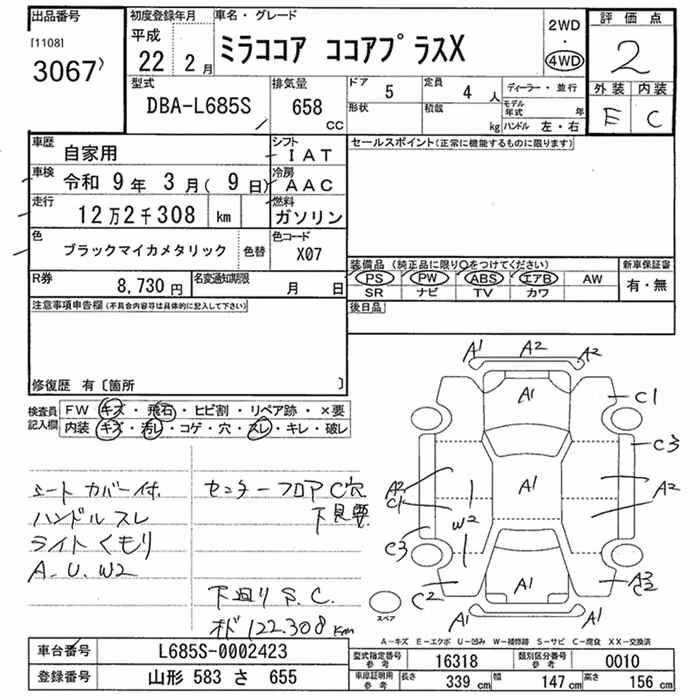 出品番号
[1108]
3067)
初度登録年月
平成
22 年 2 月
車名・グレード
ミラココア ココアプラスX
2WD
・
4WD
評価点
2
外装 内装
E C
型式
DBA-L685S
排気量
658
CC
ドア 5
定員 4 人
形状
積載 kg
ディーラー・並行
モデル年式 年
ハンドル 左・右
車歴
自家用
シフト
IAT
車検
令和 9 年 3 月( 9 日)
冷房
AAC
走行
12 万 2 千 308 km
燃料
ガソリン
色
ブラックマイカメタリック
色替
色コード
X07
R券
8,730 円
名変通知期限
月 日
セールスポイント(正常に機能するものに限ります)
装備品 (純正品に限り○をつけてください)
PS PW ABS エアB AW
SR ナビ TV カワ
新車保証書
有・無
後日品
注意事項申告欄(不具合内容等は具体的に記入して下さい)
修復歴 有〔箇所 〕
検査員記入欄
FW キズ・飛石・ヒビ割・リペア跡・×要
内装 キズ・汚レ・コゲ・穴・スレ・キレ・破レ
シートカバー付.
ハンドル スレ
ライト くもり
A.U.W2
センターフロア C穴
下見要
下廻り S.C.
オド 122.308 Km
A1 A2 A2
A1
C1
C3
A2
C1
A1
A2
W2
C3
C2
A1
A3
C2
A1 A1
スペア
A-キズ E-エクボ U-凹み W-補修跡 S-サビ C-腐食 XX-交換済
車台番号
L685S-0002423
登録番号
山形 583 さ 655
型式指定番号
参考
16318
類別区分番号
参考
0010
車庫証明用
参考
長さ 339 cm
幅 147 cm
高さ 156 cm